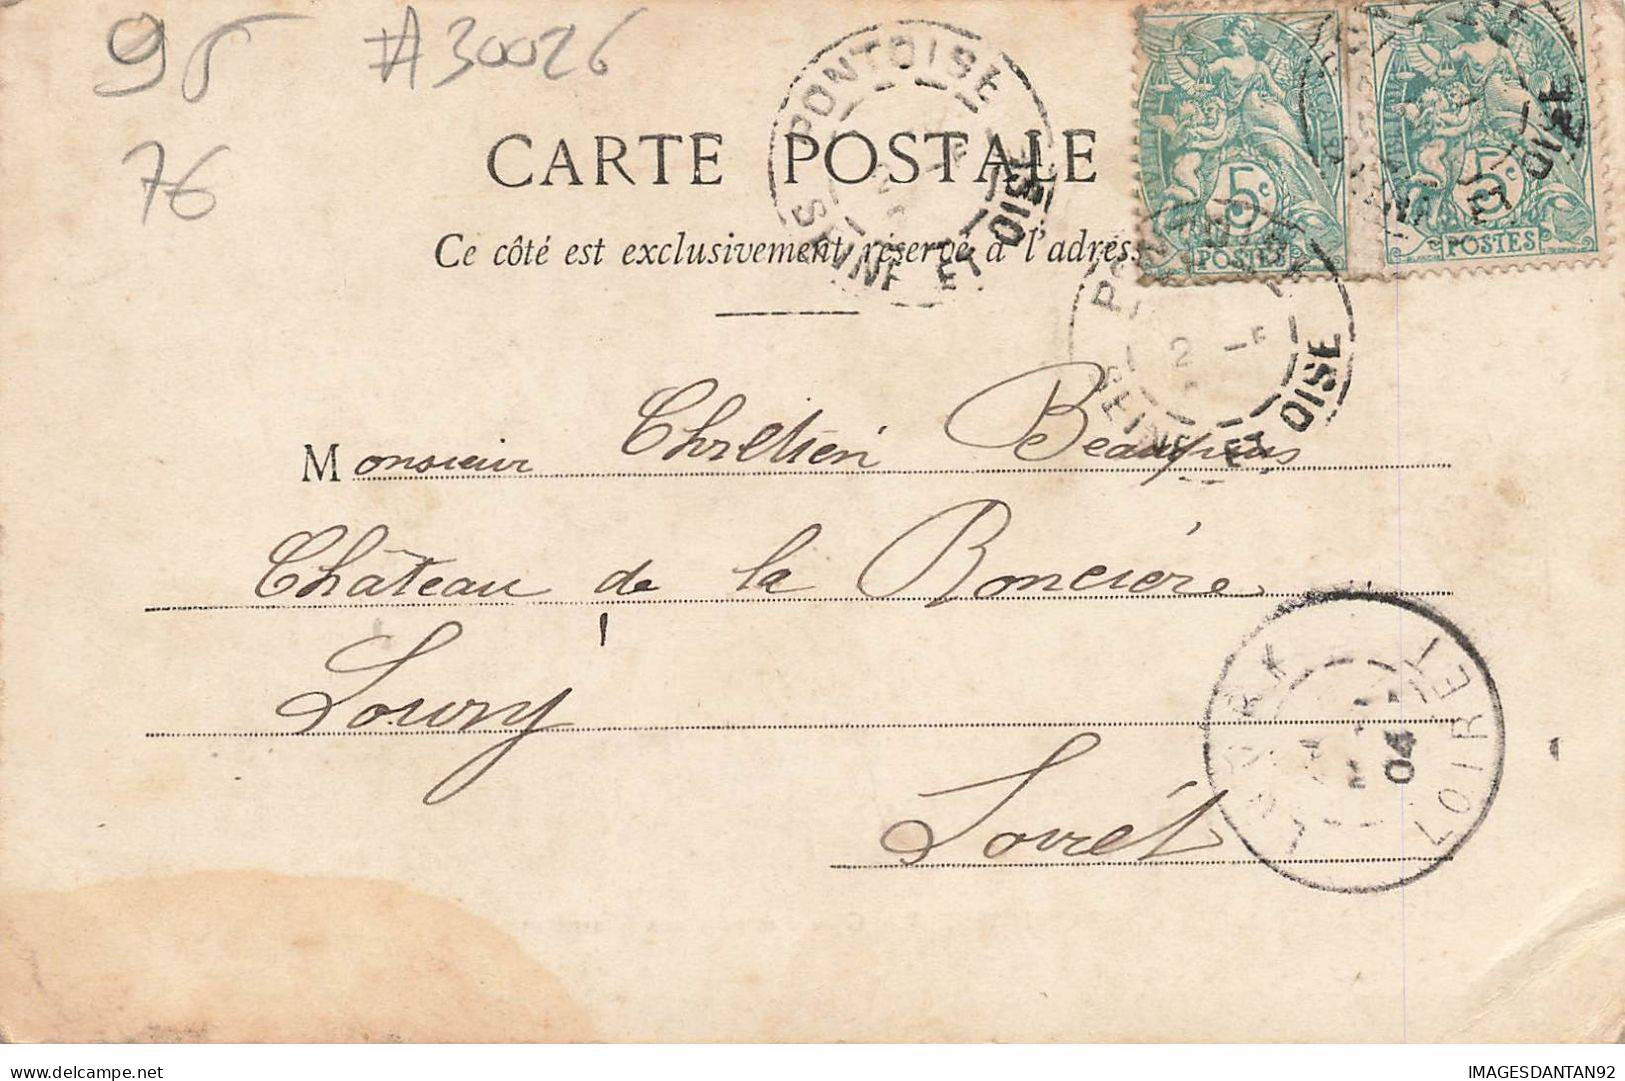 95
#30026
76
CARTE POSTALE
Ce côté est exclusivement réservé à l'adresse
PONTOISE
SEINE ET OISE
5c
POSTES
5c
POSTES
SEINE ET OISE
2
Monsieur Chrétien Beaupuis
Château de la Roncière
Loury
Loiret
04
LOIRET
delcampe.net
IMAGESDANTAN92